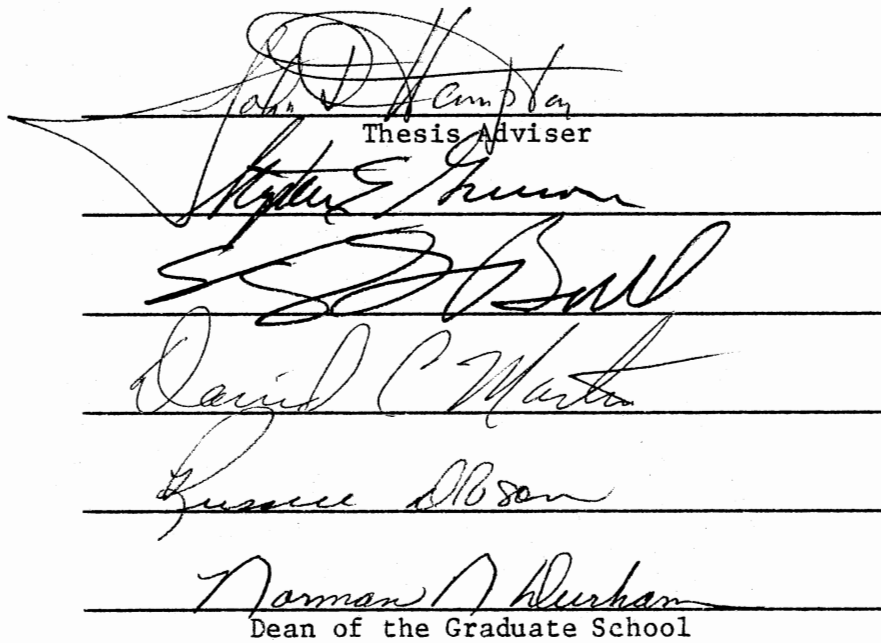 John D Hampton
Thesis Adviser
Stephen E
David C Martin
Russell Dobson
Norman N Durham
Dean of the Graduate School